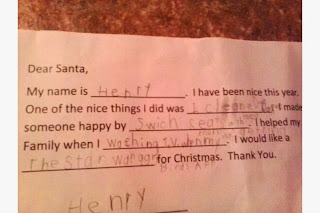 Dear Santa,
My name is Henry. I have been nice this year.
One of the nice things I did was I cleaned up. I made
someone happy by Swich seats. I helped my
Family when I Waching T.V.. I would like a
The Star for Christmas. Thank You.
Henry